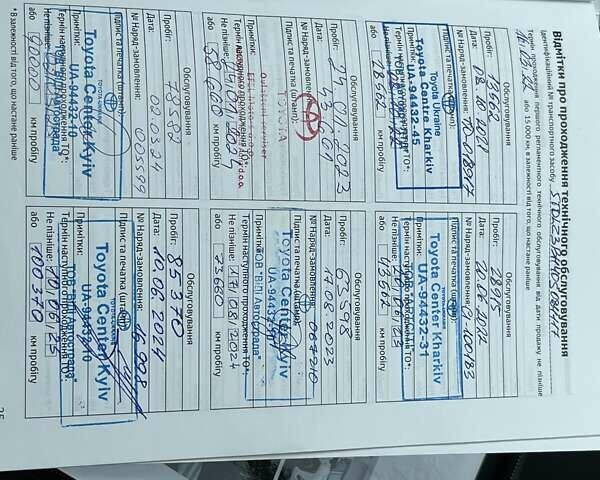 Відмітки про проходження технічного обслуговування
Ідентифікаційний № транспортного засобу
Термін проходження першого регламентного технічного обслуговування від дати продажу не пізніше
або 15 000 км, в залежності від того, що настане раніше
Обслуговування
Пробіг: 13662
Дата: 18.10.2021
№ Наряд-замовлення:
Підпис та печатка (штамп):
Toyota Ukraine
Toyota Centre Kharkiv
UA-94432-45
або 28662 км пробігу
Обслуговування
Пробіг: 28915
Дата: 20.06.2022
№ Наряд-замовлення:
Підпис та печатка (штамп):
Toyota Center Kharkiv
UA-94432-31
Примітки:
Не пізніше: 20/06/23
або км пробігу
Обслуговування
Пробіг:
Дата: 24.VII.2023
№ Наряд-замовлення:
Підпис та печатка (штамп):
TOYOTA
Примітки:
Термін наступного проходження ТО*:
Не пізніше:
або 58660 км пробігу
Обслуговування
Пробіг: 63598
Дата: 17.08.2023
№ Наряд-замовлення: 067210
Підпис та печатка (штамп):
Toyota Center Kyiv
Примітки:
Термін наступного проходження ТО*:
Не пізніше: 17/08/2024
або 73660 км пробігу
Обслуговування
Пробіг: 78582
Дата: 020324
№ Наряд-замовлення: 005599
Підпис та печатка (штамп):
Toyota Center Kyiv
UA-94432-10
Примітки:
Термін наступного проходження ТО*:
Не пізніше:
або 90000 км пробігу
Обслуговування
Пробіг: 85370
Дата: 10.06.2024
№ Наряд-замовлення:
Підпис та печатка (штамп):
Toyota Center Kyiv
UA-94432-10
Примітки:
ТОВ "ВіДі Автострада"
Термін наступного проходження ТО*:
Не пізніше: 10/06/25
або 100 370 км пробігу
* В залежності від того, що настане раніше